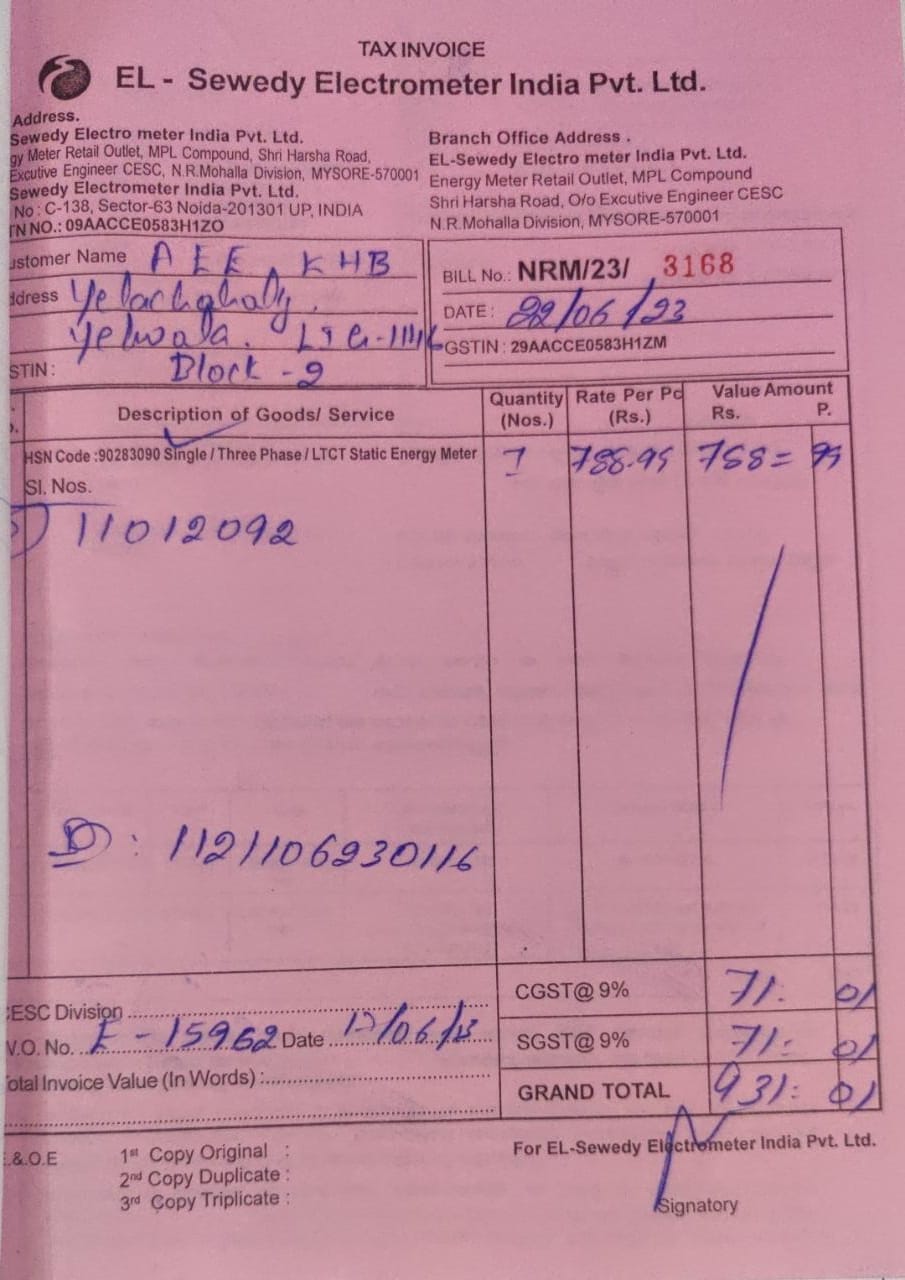 TAX INVOICE
EL - Sewedy Electrometer India Pvt. Ltd.
Address.
Sewedy Electro meter India Pvt. Ltd.
gy Meter Retail Outlet, MPL Compound, Shri Harsha Road,
Excutive Engineer CESC, N.R.Mohalla Division, MYSORE-570001
Sewedy Electrometer India Pvt. Ltd.
No : C-138, Sector-63 Noida-201301 UP, INDIA
TN NO.: 09AACCE0583H1ZO
Branch Office Address .
EL-Sewedy Electro meter India Pvt. Ltd.
Energy Meter Retail Outlet, MPL Compound
Shri Harsha Road, O/o Excutive Engineer CESC
N.R.Mohalla Division, MYSORE-570001
ustomer Name AEE, KHB
ddress
Yelwala.
STIN: Block - 2
BILL No.: NRM/23/ 3168
DATE : /06/23
GSTIN : 29AACCE0583H1ZM
Description of Goods/ Service
Quantity (Nos.)
Rate Per Pc (Rs.)
Value Amount Rs. P.
HSN Code :90283090 Single / Three Phase / LTCT Static Energy Meter 1
Sl. Nos.
11012092
D : 1121106230116
CESC Division
V.O. No. E - 15962 Date /06/23
otal Invoice Value (In Words) :
CGST@ 9% 71. 01
SGST@ 9% 71: 01
GRAND TOTAL 931: 01
E.&.O.E
1st Copy Original :
2nd Copy Duplicate :
3rd Copy Triplicate :
For EL-Sewedy Electrometer India Pvt. Ltd.
Signatory